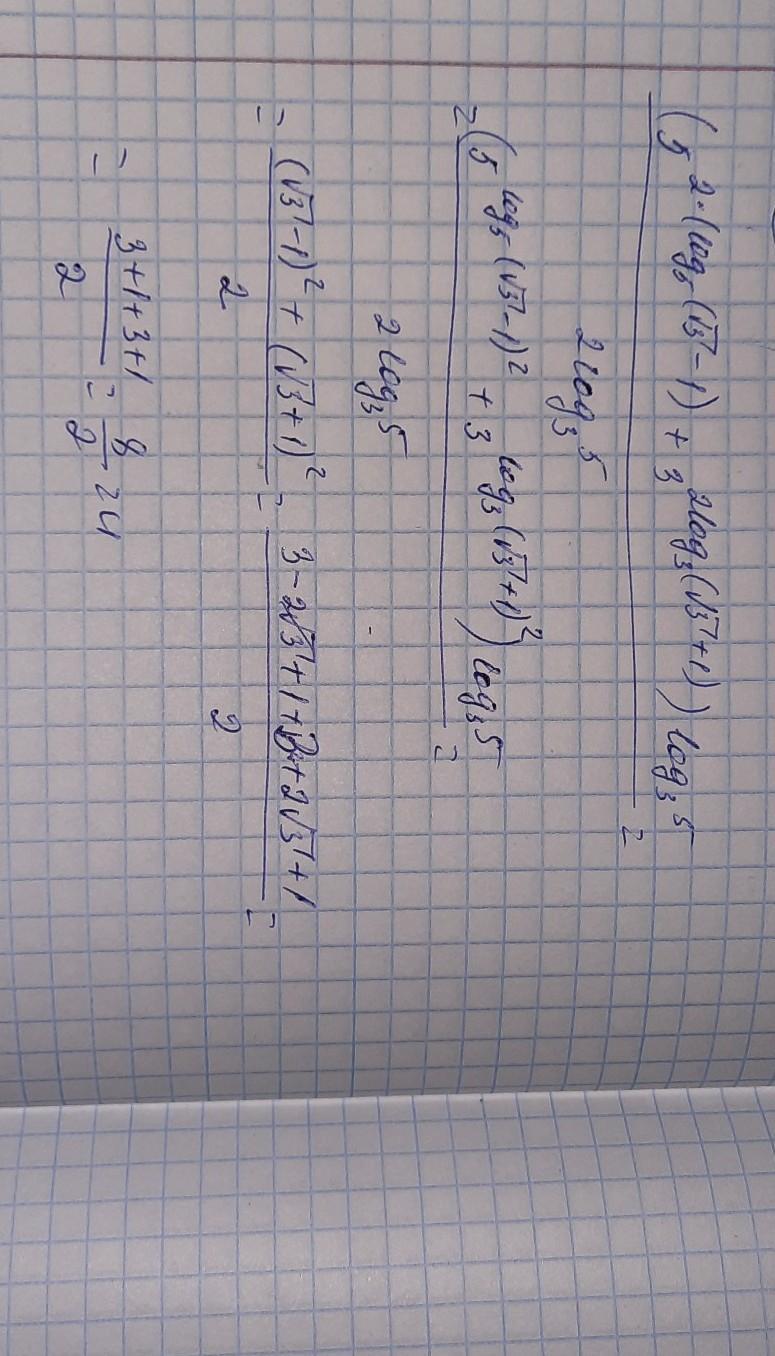 (5^{2·(log_5(√3-1)} + 3^{2log_3(√3+1)}) log_3 5
2log_3 5
=
= (5^{log_5(√3-1)^2} + 3^{log_3(√3+1)^2}) log_3 5
2log_3 5
=
= (√3-1)^2 + (√3+1)^2 = 3-2√3+1+3+2√3+1 =
2 2
= 3+1+3+1 = 8 = 4
2 2